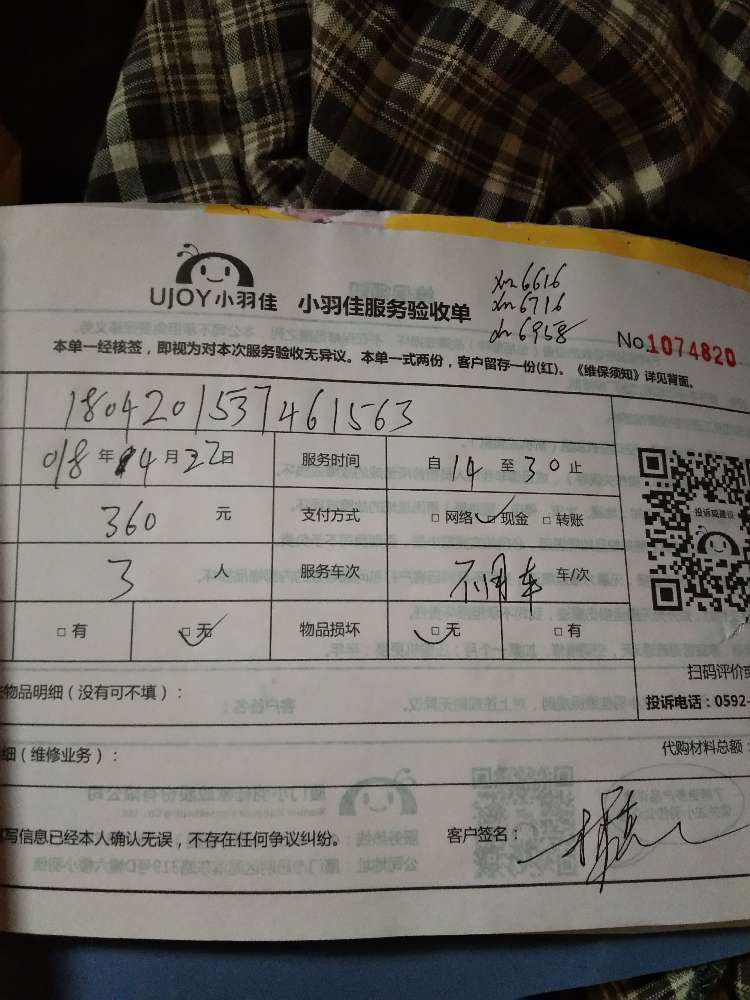 xm6616
xm6716
xm6958
UJOY小羽佳 小羽佳服务验收单
No.1074820
本单一经核签，即视为对本次服务验收无异议。本单一式两份，客户留存一份(红)。《维保须知》详见背面。
1804201537461563
018年4月22日 服务时间 自14至30止
360元 支付方式 □网络 ☑现金 □转账
投诉或建议
3人 服务车次 不用车 车/次
□有 ☑无 物品损坏 ☑无 □有
扫码评价或
物品明细（没有可不填）：
投诉电话：0592-
细（维修业务）：
代购材料总额：
写信息已经本人确认无误，不存在任何争议纠纷。 客户签名：